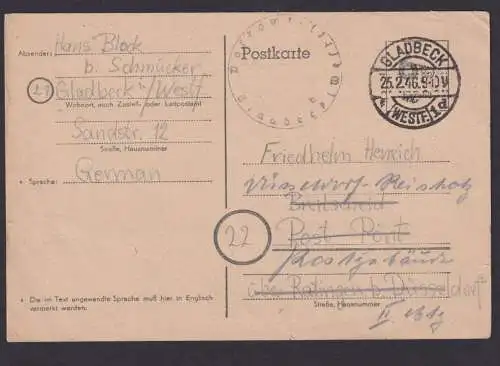 Absender: Hans Block
b. Schmücker
21 Gladbeck i/Westf
Wohnort, auch Zustell- oder Leitpostamt
Sandstr. 12
Straße, Hausnummer
• Sprache: German
• Die im Text angewandte Sprache muß hier in Englisch
vermerkt werden.
Postkarte
GLADBECK
25.2.46.9-10V
(WESTF) 1d
Friedhelm Henrich
Düsseldorf-Reisholz
Breitscheid
22
Post Pönt
Postgebäude
über Ratingen b. Düsseldorf
Straße, Hausnummer
II